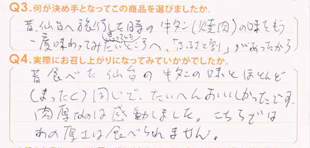 Q3.何が決め手となってこの商品を選びましたか。
昔、仙台へ旅行した時の牛タン(焼肉)の味をもう
一度味わってみたいところへ、「ふるさと割」があったから
Q4.実際にお召し上がりになってみていかがでしたか。
昔食べた仙台の牛タンの味とほとんど
(まったく)同じで、たいへんおいしかったです。
肉厚なのは感動しました。こちらでは
あの厚さは食べられません。